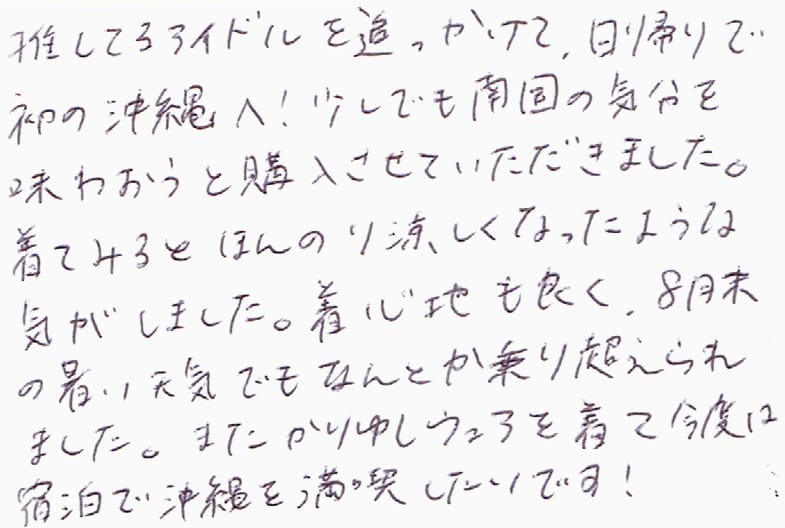 推してるアイドルを追っかけて、日帰りで
初の沖縄へ！少しでも南国の気分を
味わおうと購入させていただきました。
着てみるとほんのり涼しくなったような
気がしました。着心地も良く、8月末
の暑い天気でもなんとか乗り超えられ
ました。またかりゆしウェアを着て今度は
宿泊で沖縄を満喫したいです！